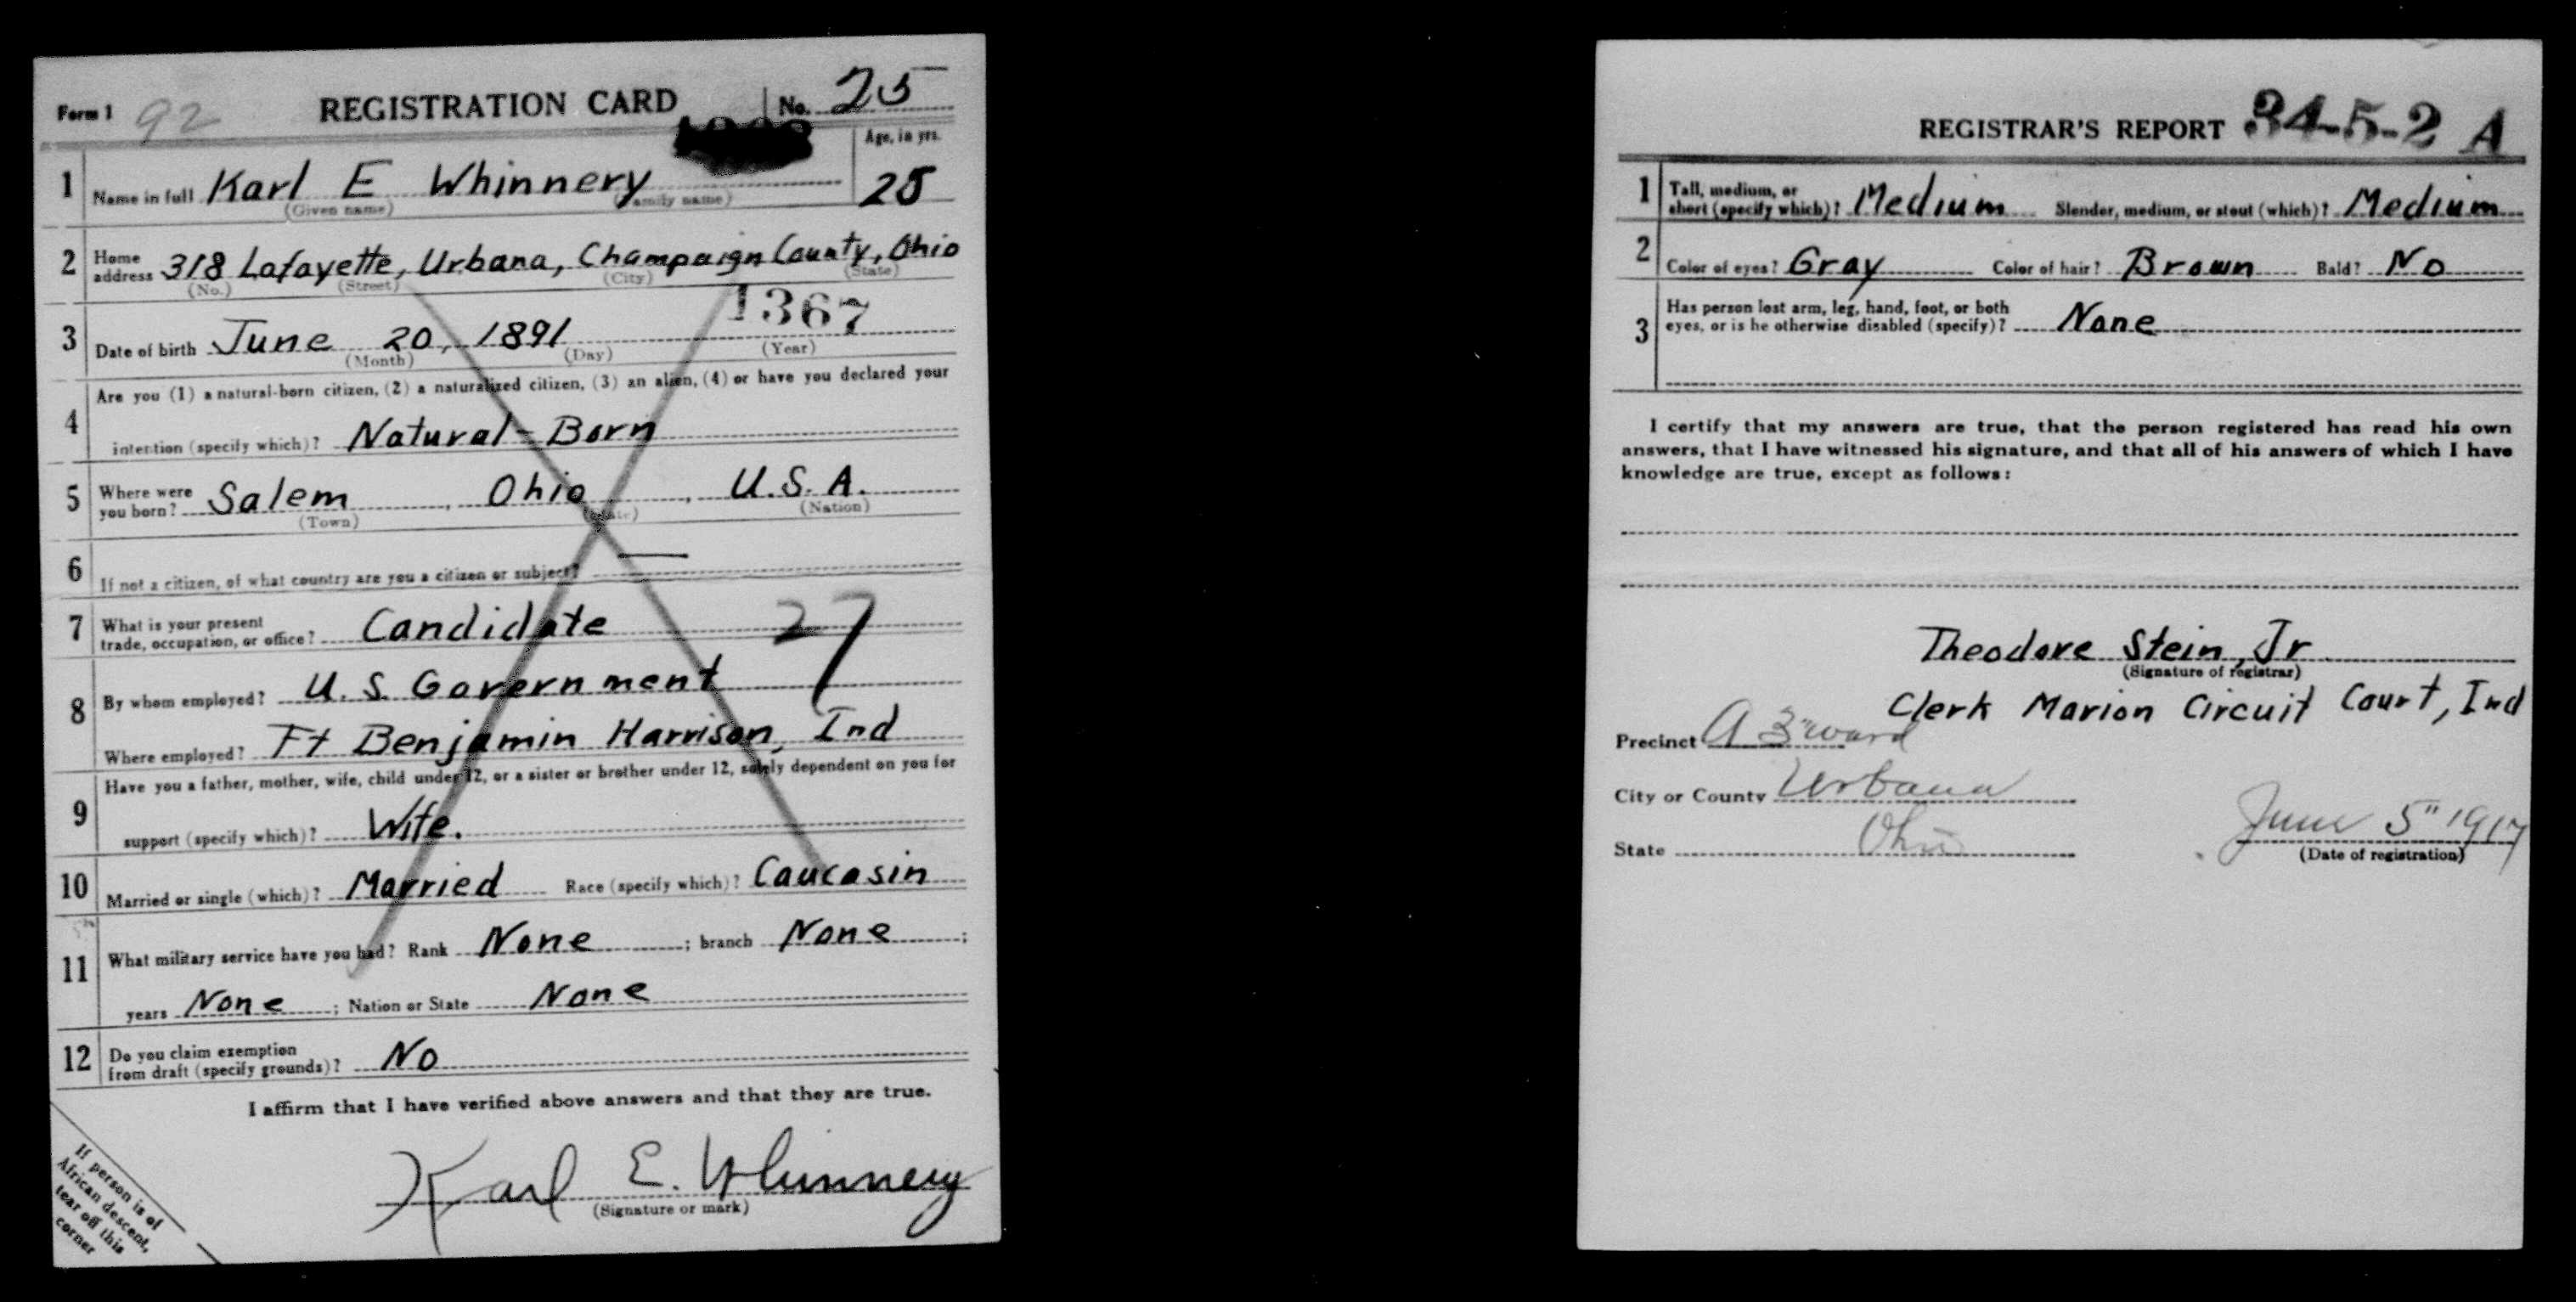 Form 1 92 REGISTRATION CARD No. 25
Age, in yrs.
1 Name in full Karl E Whinnery 25
(Given name) (Family name)
2 Home address 318 Lafayette, Urbana, Champaign County, Ohio
(No.) (Street) (City) (State)
1367
3 Date of birth June 20, 1891
(Month) (Day) (Year)
4 Are you (1) a natural-born citizen, (2) a naturalized citizen, (3) an alien, (4) or have you declared your
intention (specify which)? Natural-Born
5 Where were you born? Salem, Ohio, U.S.A.
(Town) (State) (Nation)
6 If not a citizen, of what country are you a citizen or subject? —
7 What is your present trade, occupation, or office? Candidate 27
8 By whom employed? U.S. Government
Where employed? Ft Benjamin Harrison, Ind
9 Have you a father, mother, wife, child under 12, or a sister or brother under 12, solely dependent on you for
support (specify which)? Wife.
10 Married or single (which)? Married Race (specify which)? Caucasin
11 What military service have you had? Rank None ; branch None ;
years None ; Nation or State None
12 Do you claim exemption from draft (specify grounds)? No
I affirm that I have verified above answers and that they are true.
Karl E. Whinnery
(Signature or mark)
If person is of
African descent,
tear off this
corner
REGISTRAR'S REPORT 34-5-2 A
1 Tall, medium, or short (specify which)? Medium Slender, medium, or stout (which)? Medium
2 Color of eyes? Gray Color of hair? Brown Bald? No
3 Has person lost arm, leg, hand, foot, or both
eyes, or is he otherwise disabled (specify)? None
I certify that my answers are true, that the person registered has read his own
answers, that I have witnessed his signature, and that all of his answers of which I have
knowledge are true, except as follows:
Theodore Stein, Jr
(Signature of registrar)
Clerk Marion Circuit Court, Ind
Precinct A 3" ward
City or County Urbana
State Ohio
June 5" 1917
(Date of registration)